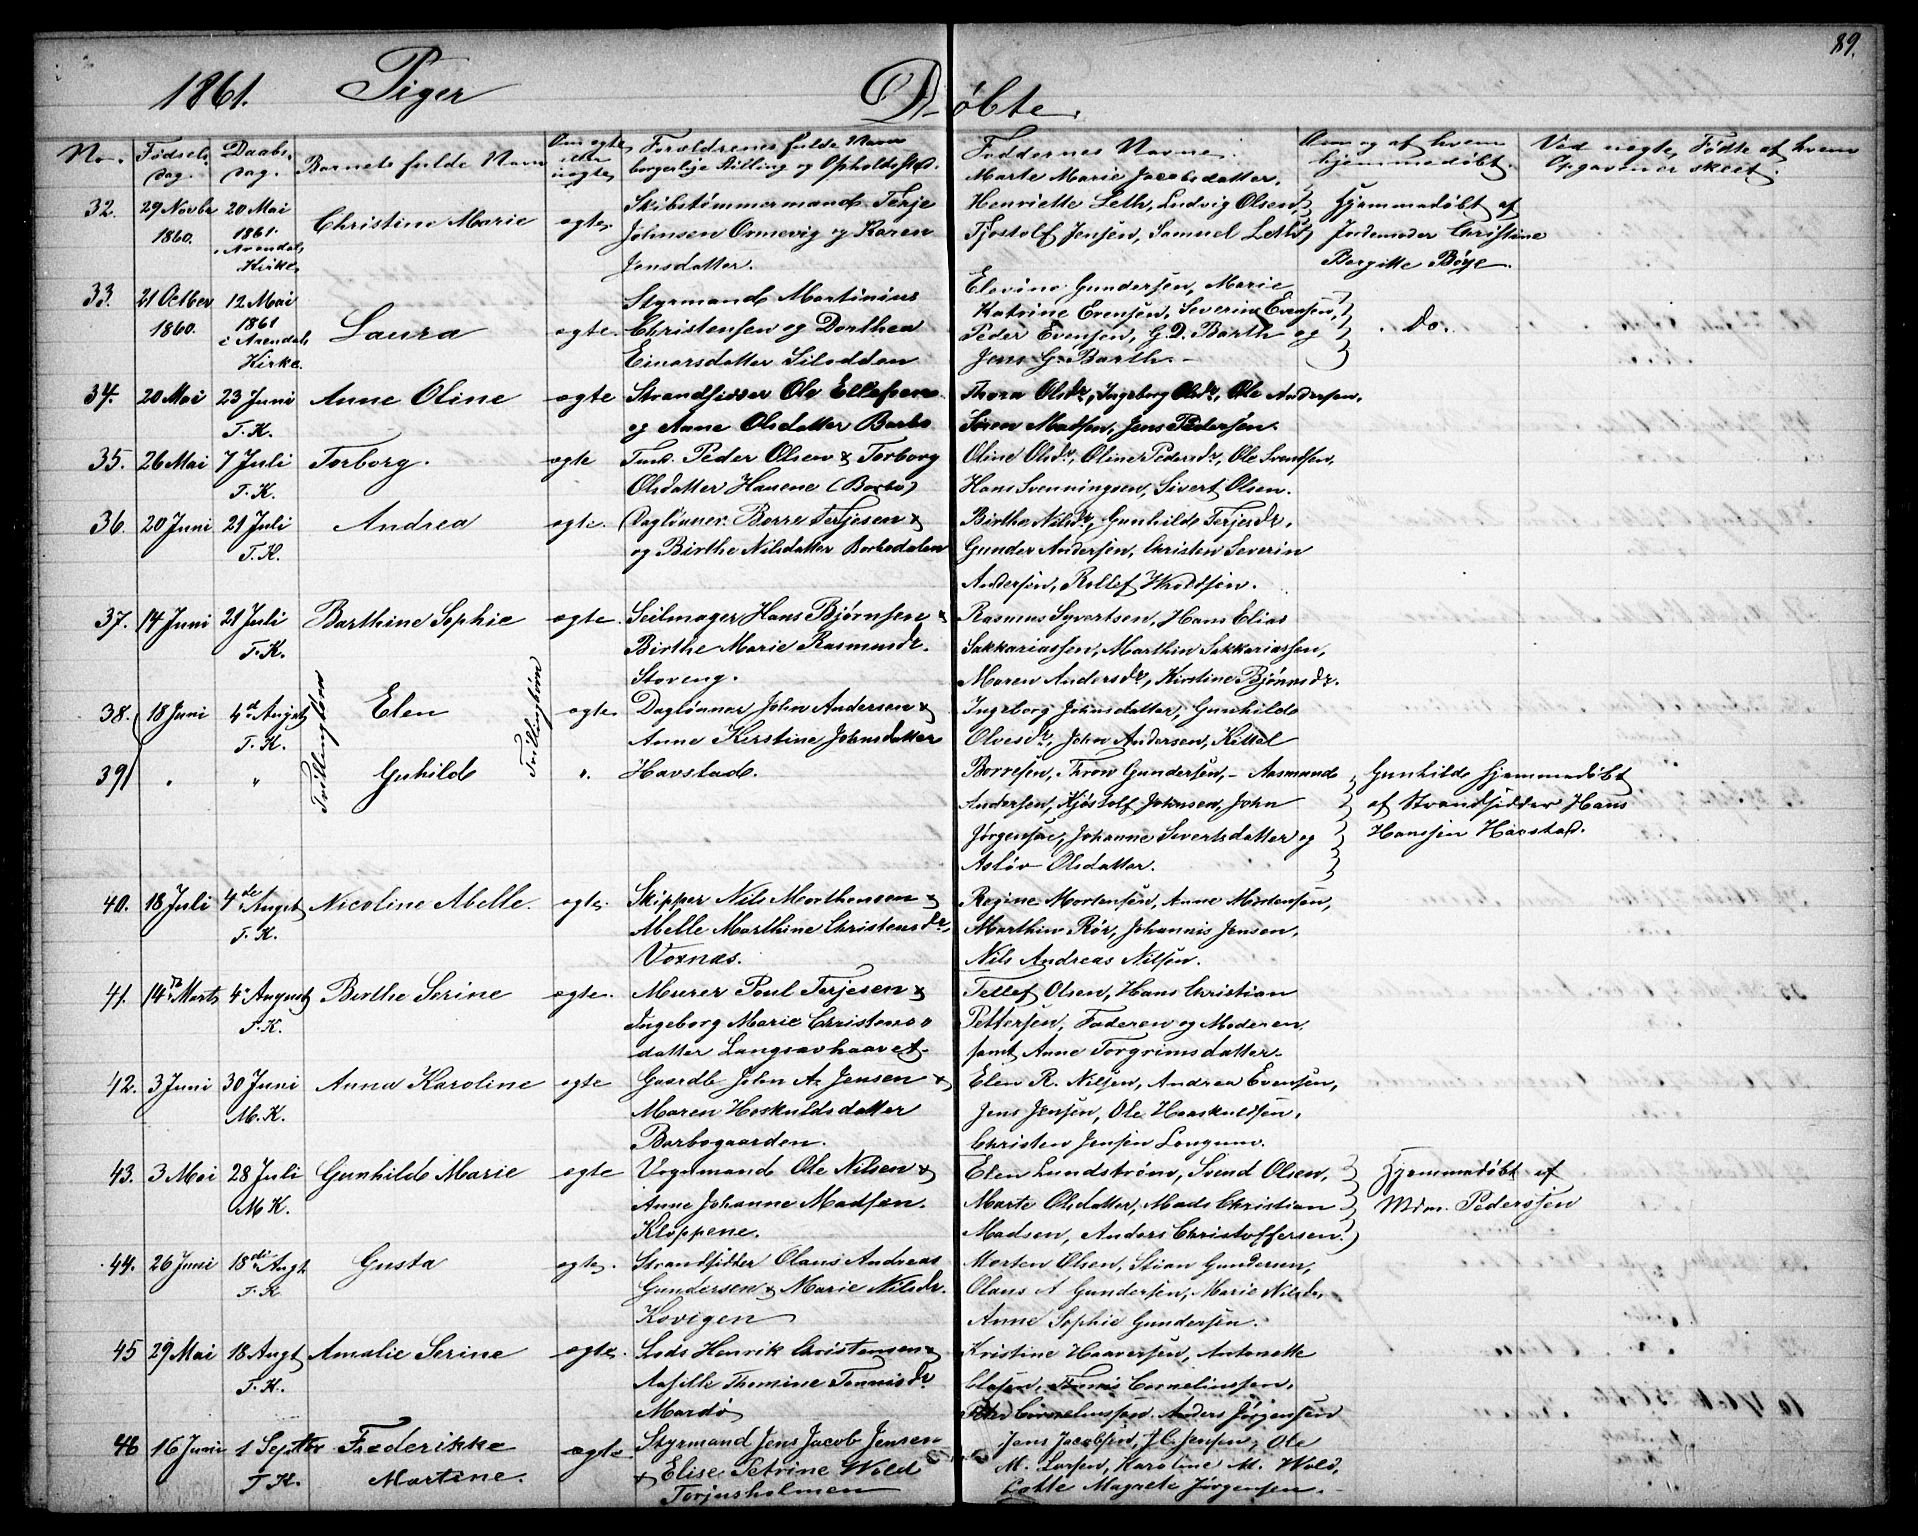 89.
1861. Piger Døbte.
No. Fødsels Dag. Daabs Dag. Barnets fulde Navn Om egte eller uegte Forældrenes fulde Navn borgerlige Stilling og Opholdssted. Faddernes Navne. Om og af hvem hjemmedøbt. Ved uegte, Fødte af hvem Opgaven er skeet.
Marte Marie Jacobsdatter,
32. 29 Novbr 20 Mai Christine Marie egte. Skibstømmermand Terje Henriette Leth, Ludvig Olsen, Hjemmedøbt af
1860. 1861. Johnsen Ormevig og Karen Tjostolf Jensen, Samuel Leth Jordemoder Christine
Arendals Kirke Jensdatter. Borgitte Bøye.
33. 21 October 12 Mai Laura egte. Styrmand Martinius Elevine Gundersen, Marie
1860. 1861 Christensen og Dorthea Katrine Evensen, Severine Evensen, do.
i Arendals Einarsdatter Silodden Peder Evensen, G. D. Barth og
Kirke. Jens G. Barth.
34. 20 Mai 23 Juni Anne Oline egte Strandsidder Ole Ellefsen Thora Olsdr, Ingeborg Olsdr, Ole Andersen,
T. K. og Anne Olsdatter Barbo Søren Madsen, Jens Pedersen.
35. 26 Mai 7 Juli Torborg. egte Tmd. Peder Olsen & Torborg Oline Olsdr, Oline Pedersdr, Ole Svendsen,
T. K. Olsdatter Hauene (Barbo) Hans Svenningsen, Sivert Olsen.
36. 20 Juni 21 Juli Andrea egte. Daglønner Borre Terjesen & Birthe Nilsdr, Gunhilde Terjesdr,
T. K. og Birthe Nilsdatter Barbodalen Gunder Andersen, Christen Severin
Andersen, Rollef
37. 14 Juni 21 Juli Barthine Sophie egte. Seilmager Hans Bjørnsen & Rasmus Syvertsen, Hans Elias
T. K. Birthe Marie Rasmusdr. Sakkariassen, Marthin Sakkariassen,
Støveng. Maren Andersdr, Kirstine Bjørnsdr.
38. 18 Juni 4de August Tvillingbørn Elen Tvillingbørn egte Daglønner John Andersen & Ingeborg Johnsdatter, Gunhilde
T. K. Anne Kirstine Johnsdatter Olvesdr, John Andersen, Kittel
39. " " Guhilde ". Havstad. Borresen, Thron Gundersen, - Aasmund Gunhilde hjemmedøbt
Andersen, Kjøstolf Johnsen, John af Strandsidder Hans
Jørgensen, Johanne Sivertsdatter og Hanssen Havstad.
Asløv Olsdatter.
40. 18 Juli 4de August Nicoline Abelle. egte. Skipper Nils Morthensen & Regine Mortensen, Anne Mortensen,
T. K. Abelle Marthine Christensdr, Marthin Rør, Johannis Jensen,
Voxnæs. Nils Andreas Nilsen.
41. 14de Marts 4. August Berthe Serine egte. Murer Poul Terjesen & Tellef Olsen, Hans Christian
T. K. Ingeborg Marie Christens- Pettersen, Faderen og Moderen,
datter Langsævhaavet. samt Anne Torgrimsdatter.
42. 3 Juni 30 Juni Anna Karoline egte Gaardb. John A. Jensen & Elen R. Nilsen, Andrea Evensen,
M. K. Maren Hoskuldsdatter Jens Jensen, Ole Haaskuldsen,
Barbogaarden. Christen Jensen Longum.
43. 3 Mai 28 Juli Gunhilde Marie egte Vognmand Ole Nilsen & Elen Lundstrøm, Svend Olsen, Hjemmedøbt af
M K. Anne Johanne Madsen. Marte Olsdatter, Mads Christian Mdm. Pedersen
Kloppene. Madsen, Anders Christoffersen.
44. 26 Juni 18de Augt Gusta egte. Strandsidder Olaus Andreas Morten Olsen, Stian Gundersen,
T. K Gundersen & Marie Nilsdr. Olaus A Gundersen, Marie Nilsdr,
Kovigen Anne Sophie Gundersen.
45 29 Mai 18 Augt Amalie Serine egte. Lods Henrik Christensen & Kristine Haaversen, Antonette
T. K. Aasille Thomine Tønnisdr Olsen, Tønnis Corneliussen,
Mærdø Peder Corneliussen, Anders Jørgensen
46 16 Juni 1 Septbr Frederikke egte. Styrmand Jens Jacob Jensen Jens Jacobsen, J. C. Jensen, Ole
T. K. Martine. & Elise Petrine Wold M. Larsen, Karoline M. Wold,
Torjusholmen Lotte Magrete Jørgensen.